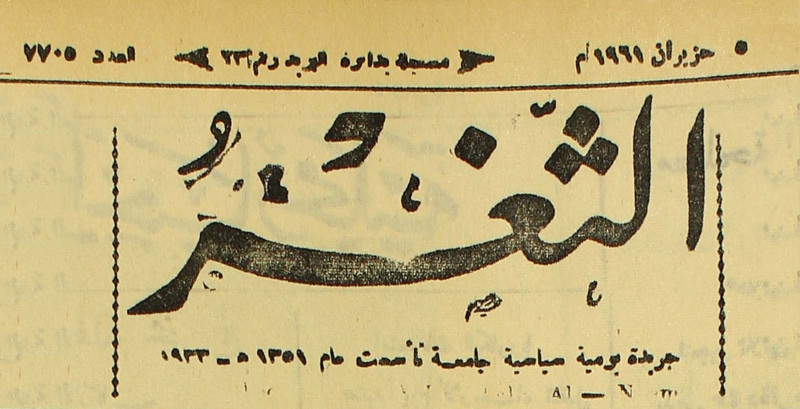 ٥ حزيران ١٩٦١م مسجلة بدائرة البريد رقم ٢٣ العدد ٧٧٠٥
الثَّغر
جريدة يومية سياسية جامعة تأسست عام ١٣٥١ ه ــ ١٩٣٣